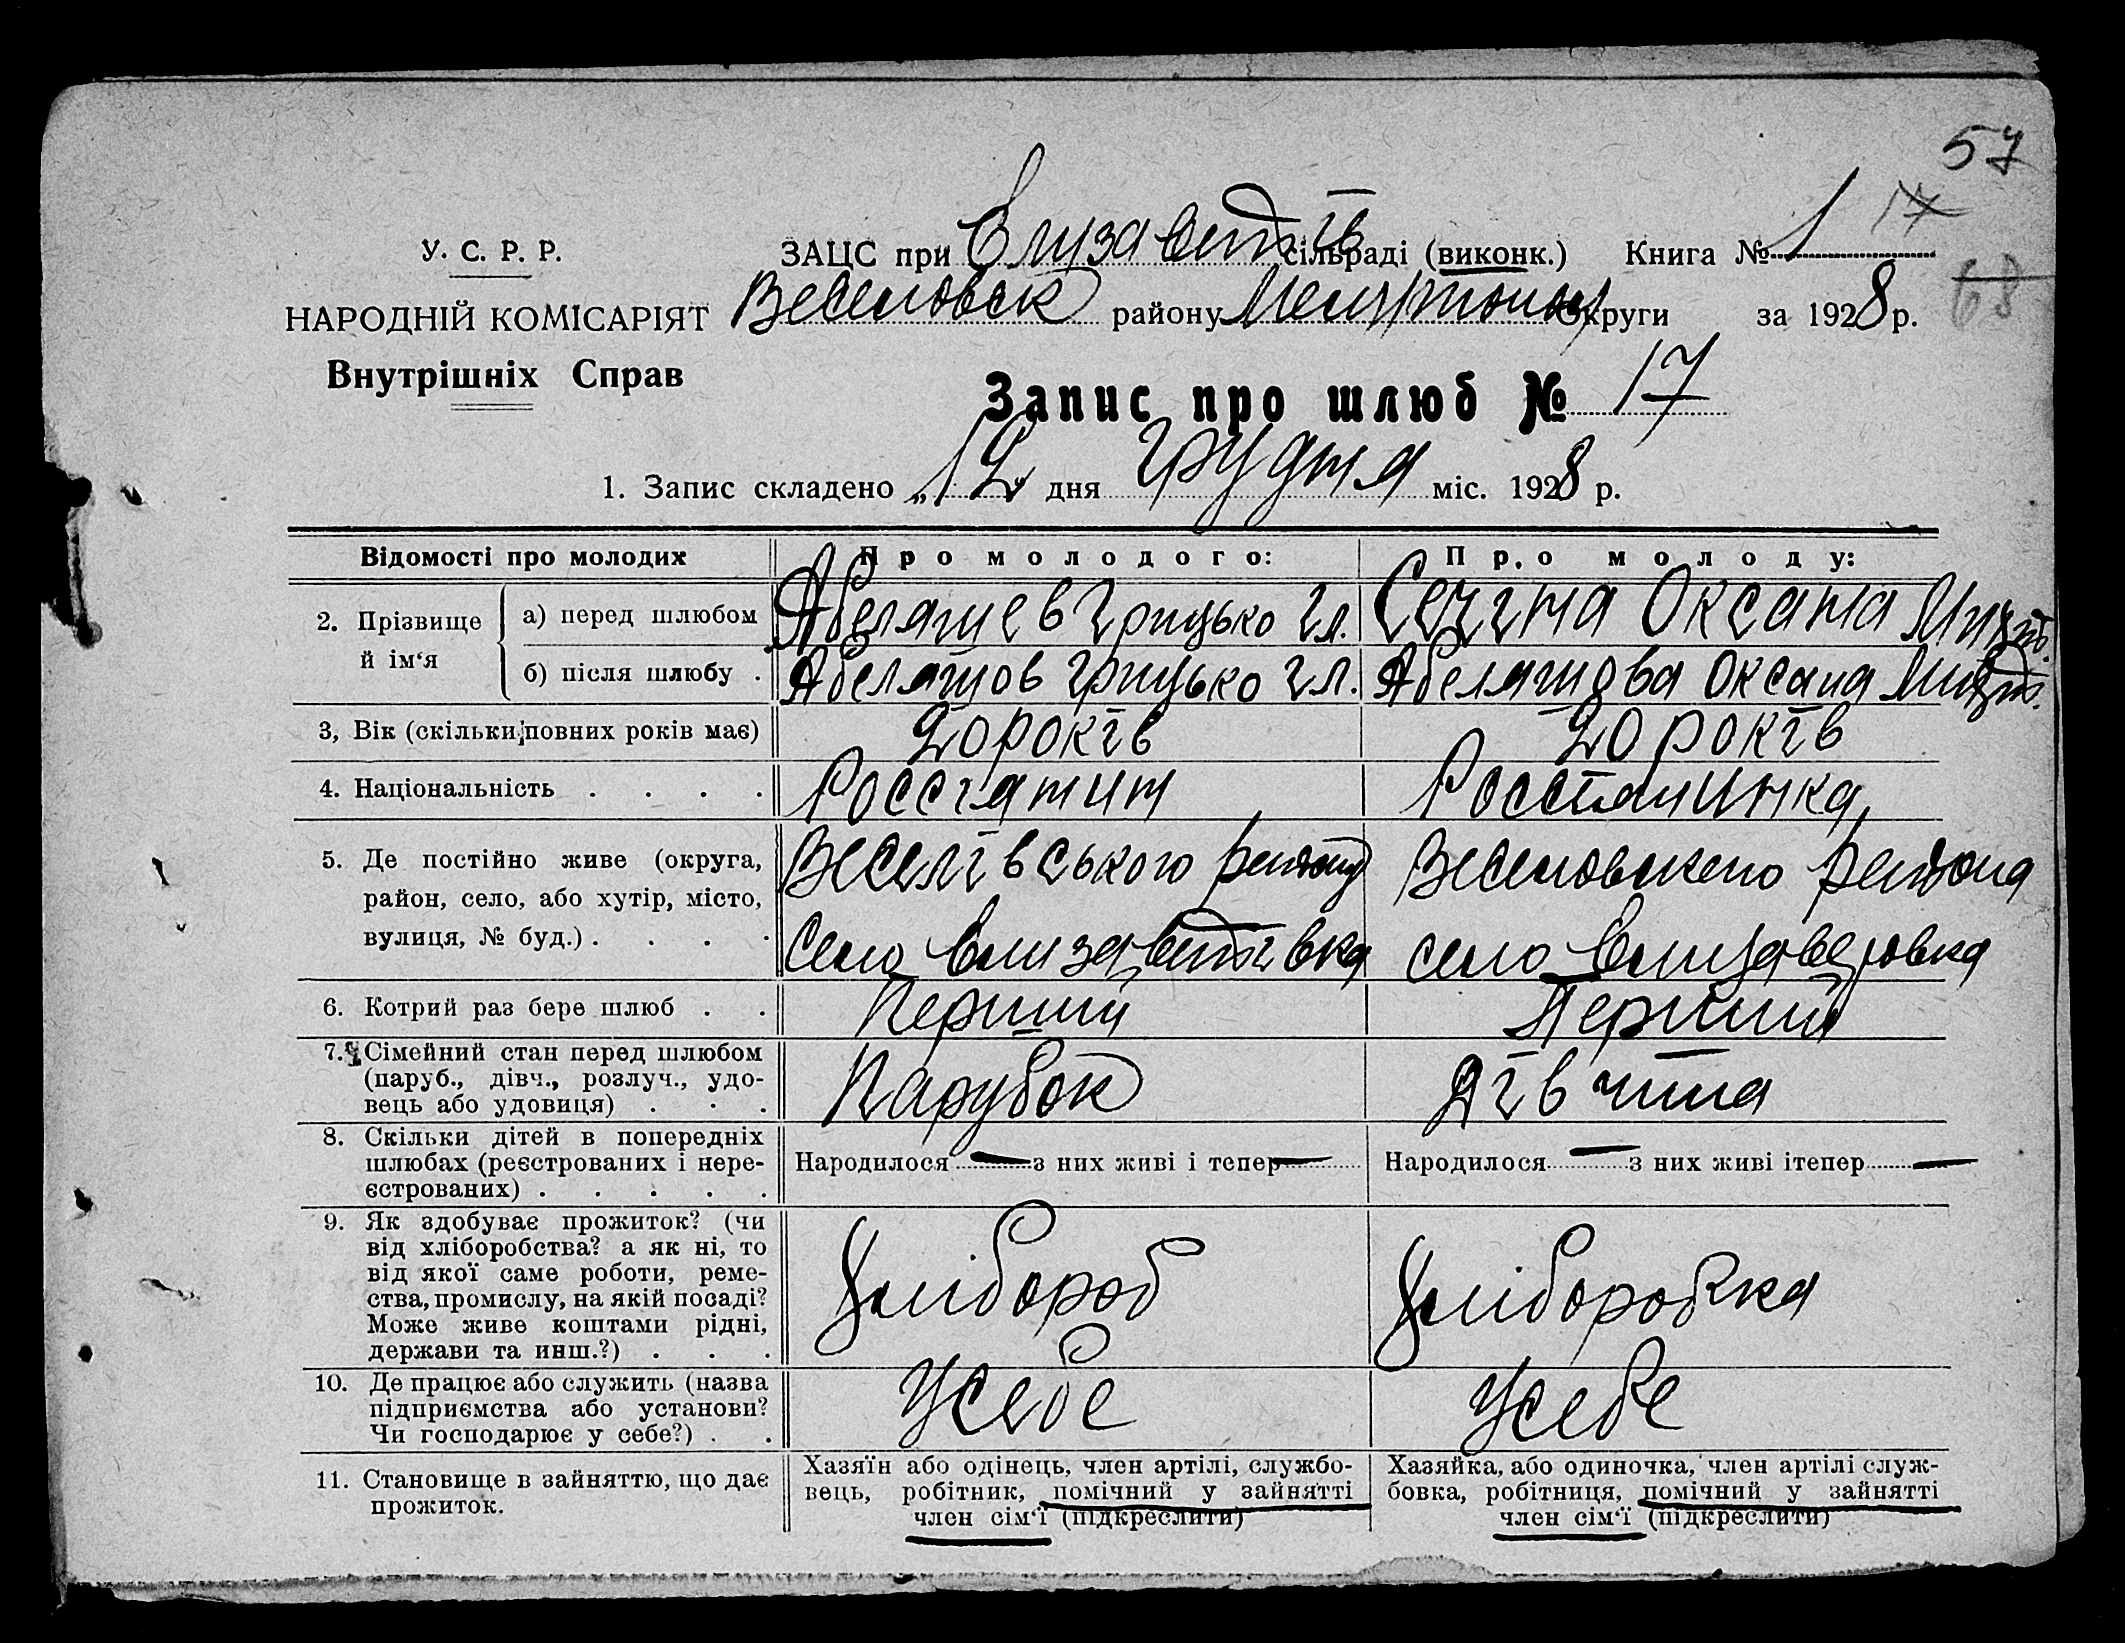 57
17
68
У. С. Р. Р.
НАРОДНІЙ КОМІСАРІЯТ
Внутрішніх Справ
ЗАЦС при Єлизаветів сільраді (виконк.) Книга № 1
Веселовск району Мелитопол Округи за 1928 р.
Запис про шлюб № 17
1. Запис складено „12 дня грудня міс. 1928 р.
Відомості про молодих Про молодого: Про молоду:
2. Прізвище й ім‘я
а) перед шлюбом Абеляшев Грицько Гл. Сечіна Оксана
б) після шлюбу . Абеляшов Грицько Гл. Абеляшова Оксана
3, Вік (скільки повних років має) 20 років 20 років
4. Національність . . . . Россіянин Россіянинка
5. Де постійно живе (округа, Веселівського району Веселовского району
район, село, або хутір, місто,
вулиця, № буд.) . . . . село Єлизаветівка село Єлизаветовка
6. Котрий раз бере шлюб . . Перший Перший
7. Сімейний стан перед шлюбом
(паруб., дівч., розлуч., удо- Парубок Дівчина
вець або удовиця) . . .
8. Скільки дітей в попередніх
шлюбах (реєстрованих і нере- Народилося — з них живі і тепер — Народилося — з них живі ітепер —
єстрованих) . . . . .
9. Як здобуває прожиток? (чи
від хліборобства? а як ні, то
від якої саме роботи, реме- Хлібороб Хліборобка
ства, промислу, на якій посаді?
Може живе коштами рідні,
держави та инш.?) . . .
10. Де працює або служить (назва
підприємства або установи? Усебе Усебе
Чи господарює у себе?) . .
11. Становище в зайняттю, що дає
прожиток.
Хазяїн або одінець, член артілі, службо-
вець, робітник, помічний у зайнятті
член сім‘ї (підкреслити)
Хазяйка, або одиночка, член артілі служ-
бовка, робітниця, помічний у зайнятті
член сім‘ї (підкреслити)